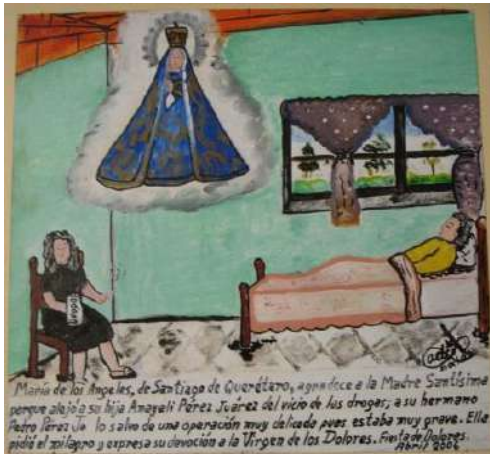 María de los Angeles, de Santiago de Querétaro, agradece a la Madre Santísima
porque alejo a su hija Anayeli Pérez Juárez del vicio de las drogas; a su hermano
Pedro Pérez Jo lo salvo de una operación muy delicada pues estaba muy grave. Ella
pidió el milagro y expresa su devoción a la Virgen de los Dolores. Fiesta de Dolores.
Abril 2006